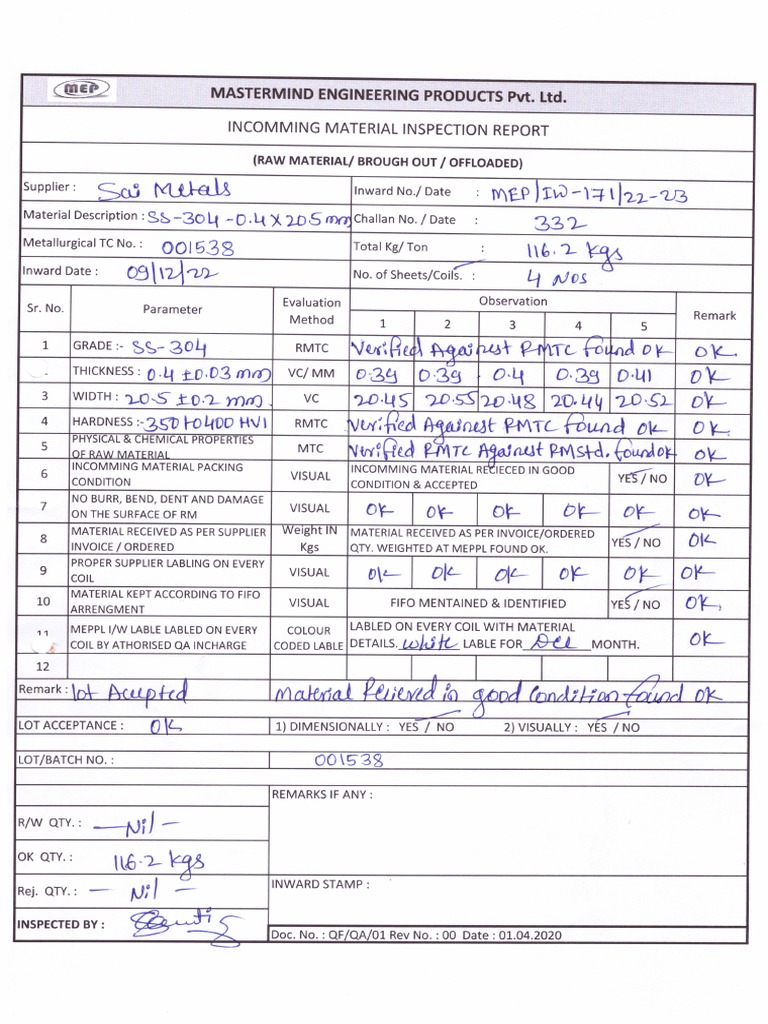 MEP
MASTERMIND ENGINEERING PRODUCTS Pvt. Ltd.
INCOMMING MATERIAL INSPECTION REPORT
(RAW MATERIAL/ BROUGH OUT / OFFLOADED)
Supplier : Sai Metals Inward No./ Date : MEP/IW-171/22-23
Material Description : SS-304-0.4X20.5 mm Challan No. / Date : 332
Metallurgical TC No. : 001538 Total Kg/ Ton : 116.2 kgs
Inward Date : 09/12/22 No. of Sheets/Coils. : 4 Nos
Sr. No. Parameter Evaluation Method Observation Remark
1 2 3 4 5
1 GRADE :- SS-304 RMTC Verified Againest RMTC found OK OK.
THICKNESS : 0.4 ±0.03 mm VC/ MM 0.39 0.39 0.4 0.39 0.41 OK
3 WIDTH : 20.5 ±0.2 mm VC 20.45 20.55 20.48 20.44 20.52 OK
4 HARDNESS:- 350 to 400 HV1 RMTC Verified Againest RMTC found OK OK.
5 PHYSICAL & CHEMICAL PROPERTIES OF RAW MATERIAL MTC Verified RMTC Againest RMStd. found OK OK
6 INCOMMING MATERIAL PACKING CONDITION VISUAL INCOMMING MATERIAL RECIECED IN GOOD CONDITION & ACCEPTED YES / NO OK
7 NO BURR, BEND, DENT AND DAMAGE ON THE SURFACE OF RM VISUAL OK OK OK OK OK OK
8 MATERIAL RECEIVED AS PER SUPPLIER INVOICE / ORDERED Weight IN Kgs MATERIAL RECEIVED AS PER INVOICE/ORDERED QTY. WEIGHTED AT MEPPL FOUND OK. YES / NO OK
9 PROPER SUPPLIER LABLING ON EVERY COIL VISUAL OK OK OK OK OK OK
10 MATERIAL KEPT ACCORDING TO FIFO ARRENGMENT VISUAL FIFO MENTAINED & IDENTIFIED YES / NO OK.
11 MEPPL I/W LABLE LABLED ON EVERY COIL BY ATHORISED QA INCHARGE COLOUR CODED LABLE LABLED ON EVERY COIL WITH MATERIAL DETAILS. White LABLE FOR Dec MONTH. OK
12
Remark : lot Accepted Material Recieved in good condition found OK
LOT ACCEPTANCE : OK 1) DIMENSIONALLY : YES / NO 2) VISUALLY : YES / NO
LOT/BATCH NO. : 001538
REMARKS IF ANY :
R/W QTY. : — Nil —
OK QTY. : 116.2 kgs
Rej. QTY. : — Nil —
INWARD STAMP :
INSPECTED BY :
Doc. No. : QF/QA/01 Rev No. : 00 Date : 01.04.2020